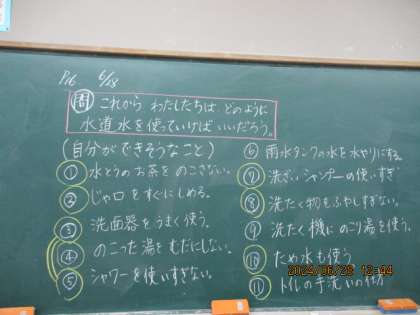 P16 6/28
問 これから わたしたちは どのように
水道水を使っていけばいいだろう。
(自分ができそうなこと)
① 水とうのお茶を のこさない。
② じゃ口をすぐにしめる。
③ 洗面器をうまく使う。
④ のこった湯をむだにしない。
⑤ シャワーを使いすぎない。
⑥ 雨水タンクの水を水やりにする
⑦ 洗ざい シャンプーの使いすぎ
⑧ 洗たく物をふやしすぎない。
⑨ 洗たく機に のこり湯を使う。
⑩ ため水も使う
⑪ トイレの手洗いの仕方
2024/06/28 12:44